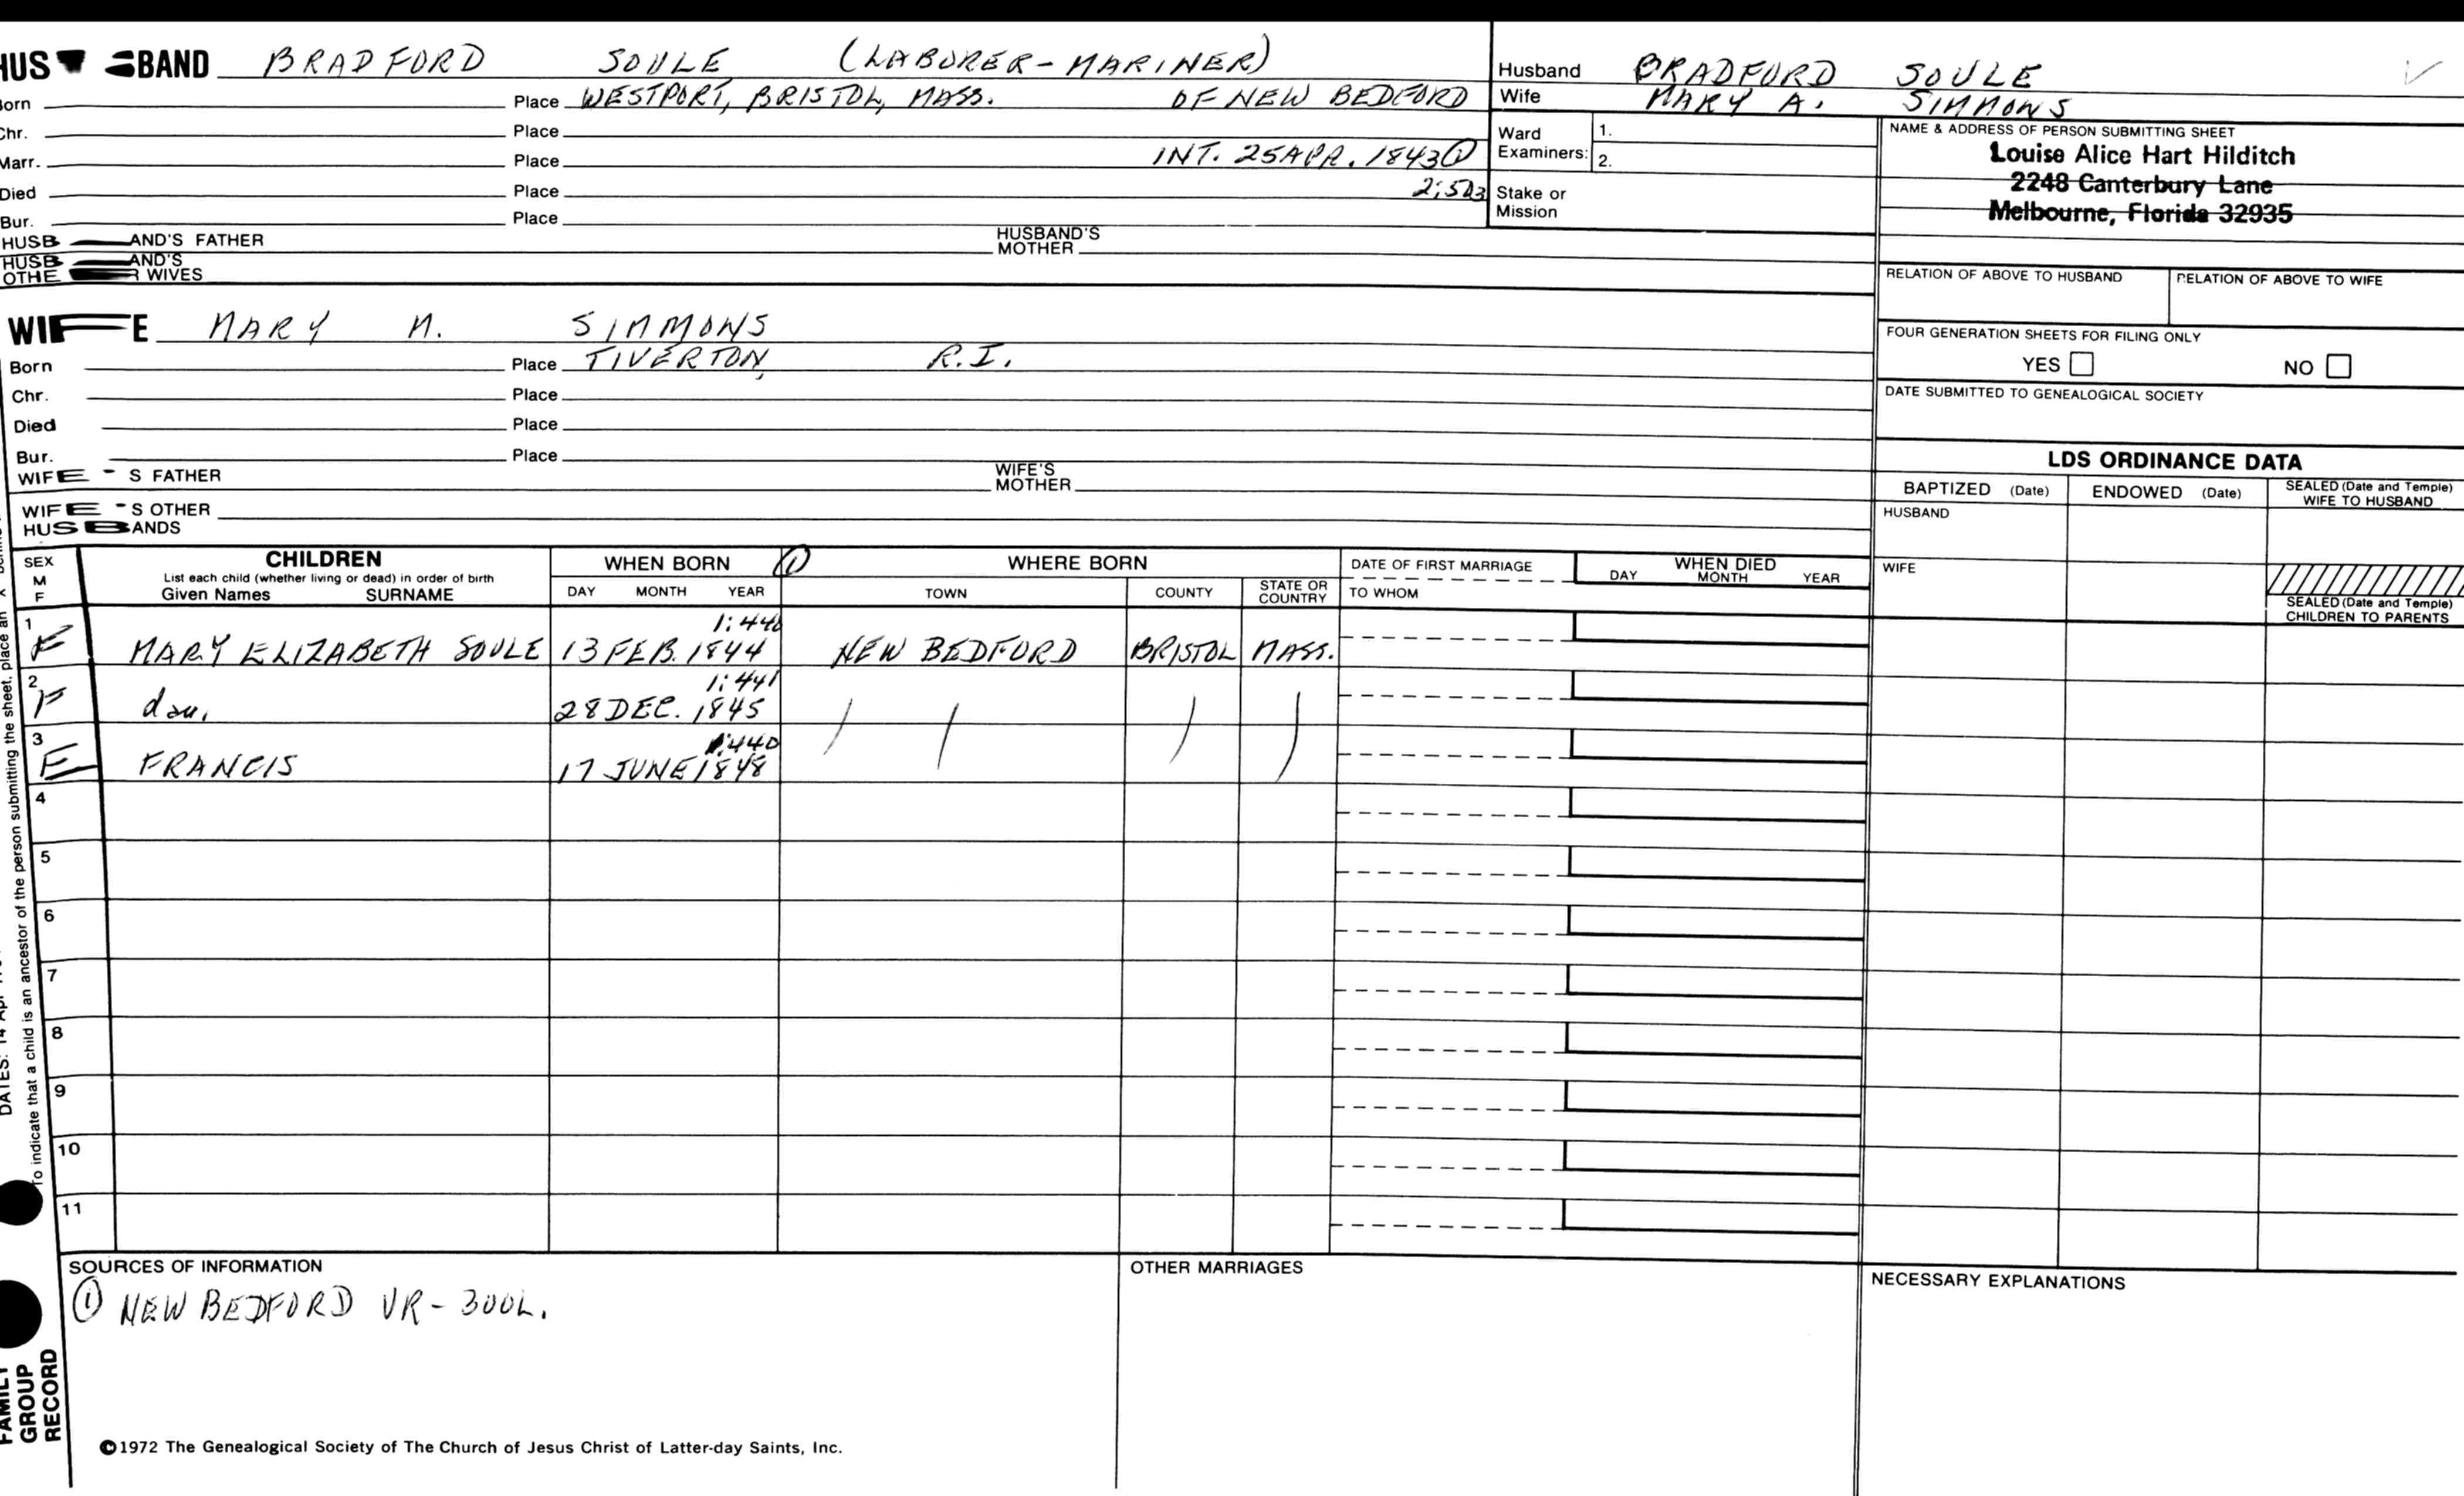 HUSBAND BRADFORD SOULE (LABORER-MARINER)
Born Place WESTPORT, BRISTOL, MASS. OF NEW BEDFORD
Chr. Place
Marr. Place INT. 25 APR. 1843 ①
Died Place 2:523
Bur. Place
HUSBAND'S FATHER HUSBAND'S MOTHER
HUSBAND'S OTHER WIVES
Husband BRADFORD SOULE
Wife MARY A. SIMMONS
Ward Examiners: 1.
2.
Stake or Mission
NAME & ADDRESS OF PERSON SUBMITTING SHEET
Louise Alice Hart Hilditch
2248 Canterbury Lane
Melbourne, Florida 32935
RELATION OF ABOVE TO HUSBAND RELATION OF ABOVE TO WIFE
FOUR GENERATION SHEETS FOR FILING ONLY
YES NO
DATE SUBMITTED TO GENEALOGICAL SOCIETY
WIFE MARY M. SIMMONS
Born Place TIVERTON, R.I.
Chr. Place
Died Place
Bur. Place
WIFE'S FATHER WIFE'S MOTHER
WIFE'S OTHER HUSBANDS
LDS ORDINANCE DATA
BAPTIZED (Date) ENDOWED (Date) SEALED (Date and Temple) WIFE TO HUSBAND
HUSBAND
WIFE
SEALED (Date and Temple) CHILDREN TO PARENTS
SEX M F CHILDREN WHEN BORN ① WHERE BORN DATE OF FIRST MARRIAGE WHEN DIED
List each child (whether living or dead) in order of birth
Given Names SURNAME DAY MONTH YEAR TOWN COUNTY STATE OR COUNTRY TO WHOM DAY MONTH YEAR
1:440
1 F MARY ELIZABETH SOULE 13 FEB. 1844 NEW BEDFORD BRISTOL MASS.
1:441
2 F dau. 28 DEC. 1845
1:440
3 F FRANCIS 17 JUNE 1848
4
5
6
7
8
9
10
11
SOURCES OF INFORMATION OTHER MARRIAGES NECESSARY EXPLANATIONS
① NEW BEDFORD VR-300L.
©1972 The Genealogical Society of The Church of Jesus Christ of Latter-day Saints, Inc.
FAMILY GROUP RECORD
DATES: 14 Apr
To indicate that a child is an ancestor of the person submitting the sheet, place an "X"